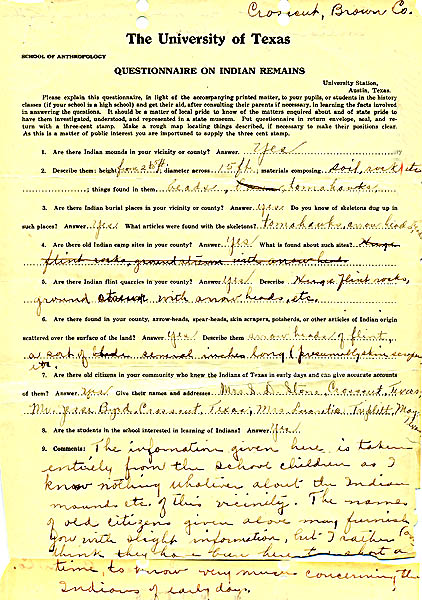 Crosscut, Brown Co.
The University of Texas
SCHOOL OF ANTHROPOLOGY
QUESTIONNAIRE ON INDIAN REMAINS
University Station,
Austin, Texas.
Please explain this questionnaire, in light of the accompanying printed matter, to your pupils, or students in the history
classes (if your school is a high school) and get their aid, after consulting their parents if necessary, in learning the facts involved
in answering the questions. It should be a matter of local pride to know of the matters enquired about and of state pride to
have them investigated, understood, and represented in a state museum. Put questionnaire in return envelope, seal, and re-
turn with a three-cent stamp. Make a rough map locating things described, if necessary to make their positions clear.
As this is a matter of public interest you are importuned to supply the three cent stamp.
1. Are there Indian mounds in your vicinity or county? Answer Yes
2. Describe them: height diameter across 15 ft. materials composing soil, rocks etc
; things found in them beads, tomahawks
3. Are there Indian burial places in your vicinity or county? Answer Yes Do you know of skeletons dug up in
such places? Answer Yes What articles were found with the skeletons? tomahawks, arrow heads, etc
4. Are there old Indian camp sites in your county? Answer Yes What is found about such sites? Huge
flint rocks, ground strewn with arrow heads
5. Are there Indian flint quarries in your county? Answer Yes Describe Huge flint rocks,
ground strewn with arrow heads, etc.
6. Are there found in your county, arrow-heads, spear-heads, skin scrapers, potsherds, or other articles of Indian origin
scattered over the surface of the land? Answer Yes Describe them arrow heads of flint,
a sort of several inches long (presumably skin scraper
etc.
7. Are there old citizens in your community who knew the Indians in early days and can give accurate accounts
of them? Answer Yes Give their names and addresses Mrs. S. D. Stone, Crosscut, Texas,
Mr. Jesse Byrd, Crosscut, Texas, Mrs. Triplitt, May
Texas
8. Are the students in the school interested in learning of Indians? Answer Yes
9. Comments: The information given here is taken
entirely from the school children as I
know nothing whatever about the Indian
mounds etc. of this vicinity. The names
of old citizens given above may furnish
you with slight information, but I rather
think they have been here too short a
time, to know very much concerning the
Indians of early days.